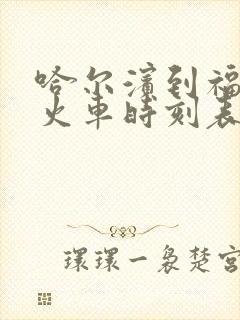 哈尔濱到福
火車時刻表
環環一裊楚宮